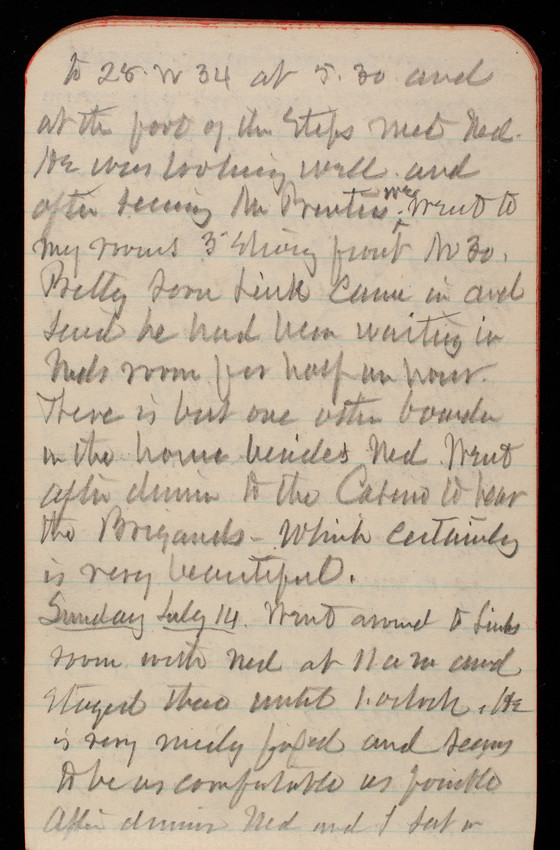 to 28. W 34 at 5.30 and
at the foot of the Steps met Ned.
He was looking well and
after seeing Mr Prentiss, we went to
my rooms 3d Story front No 30.
Pretty soon Link came in and
said he had been waiting in
Neds room for half an hour.
There is but one other boarder
in the house besides Ned. Went
after dinner to the Casino to hear
the Brigands - Which certainly
is very beautiful.
Sunday July 14. Went around to Links
room with Ned at 11 a m and
stayed there until 1. oclock. He
is very nicely fixed and seems
to be as comfortable as possible
After dinner Ned and I sat in